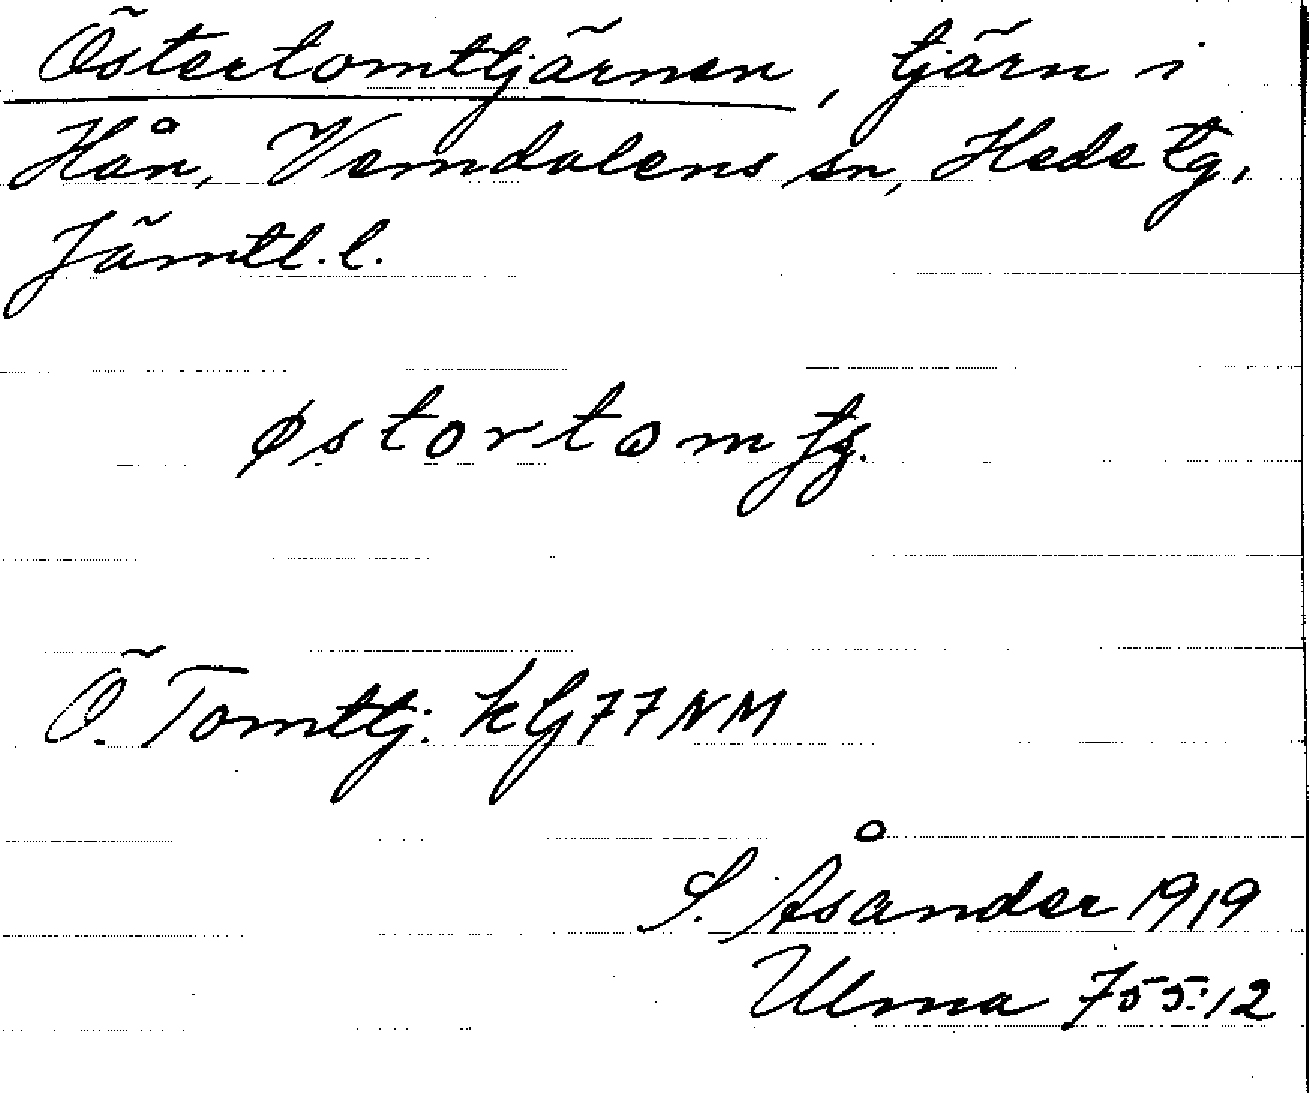 Östertomttjärnen, tjärn i
Hån, Vemdalens sn, Hede tg,
Jämtl. l.
østortomtj.
Ö. Tomttj. kG77NM
S. Åsander 1919
Ulma 755:12